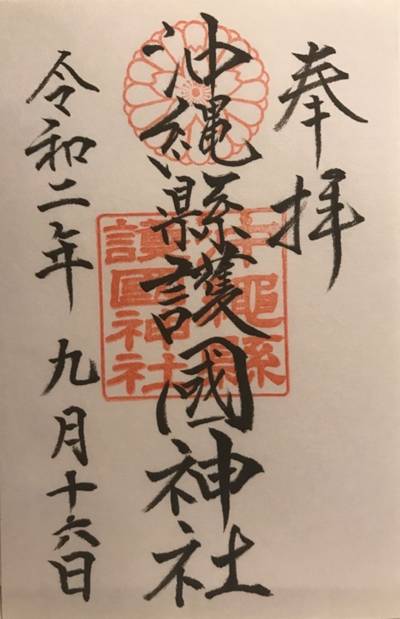 奉拝
沖縄縣護國神社
沖縄縣
護国神社
令和二年 九月十六日